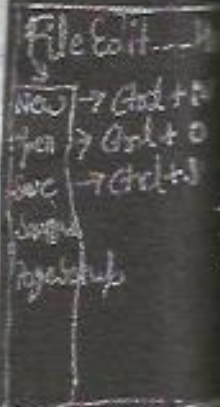 File Edit....
New → Ctrl + N
Open → Ctrl + O
Save → Ctrl + S
Page Setup